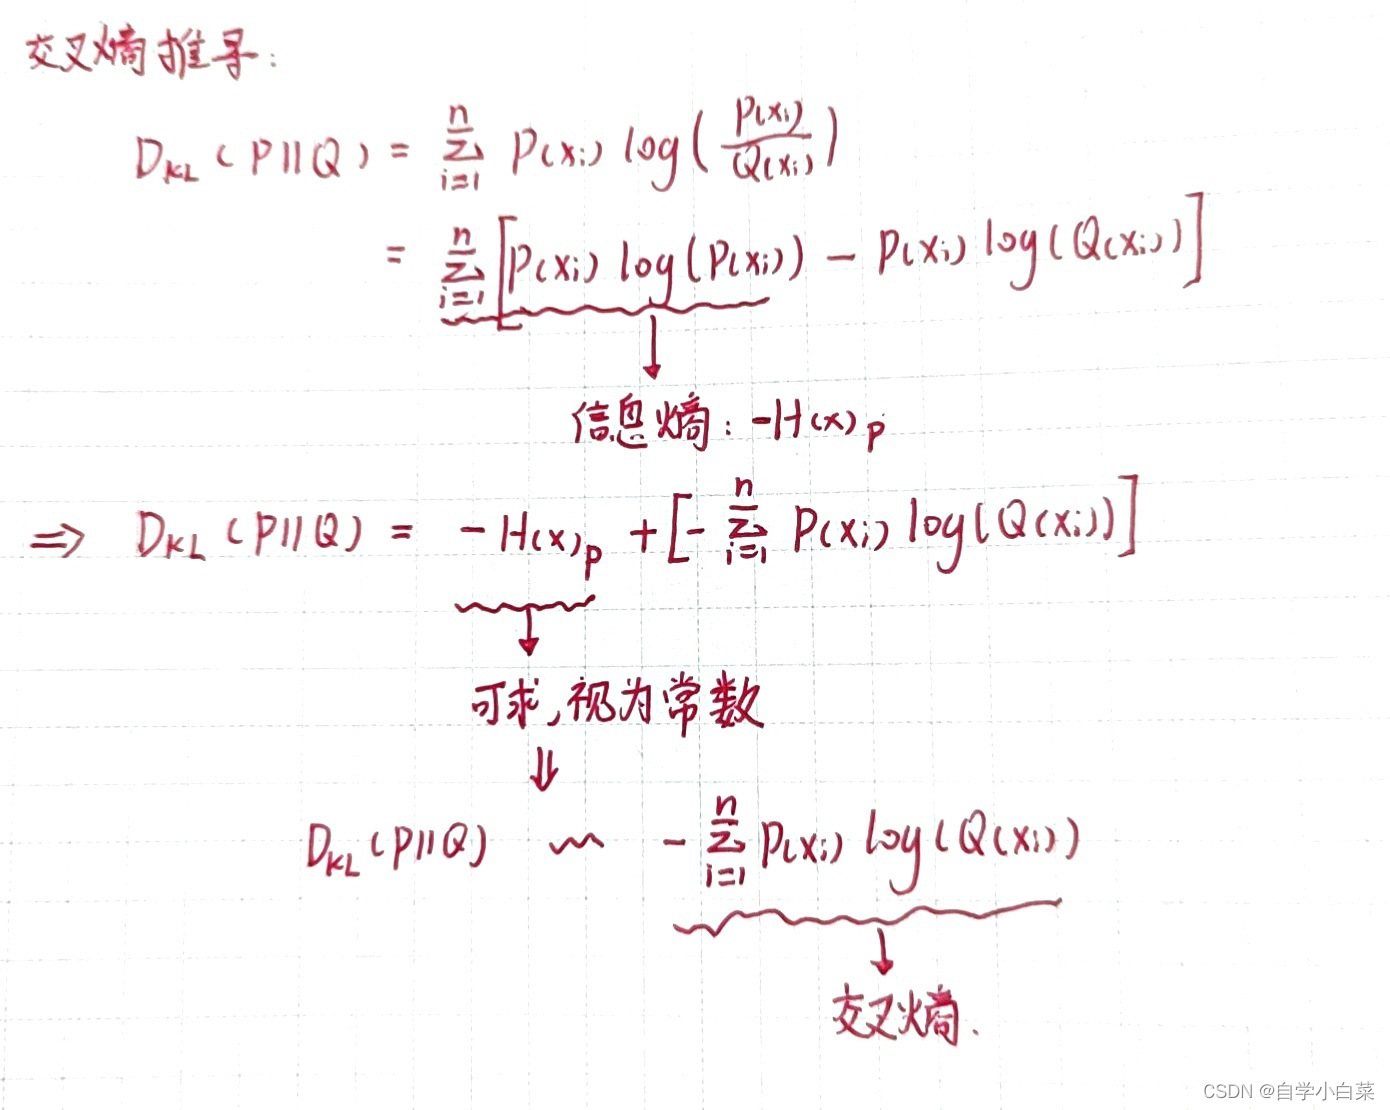 交叉熵推导:
D_KL(P||Q) = \sum_{i=1}^{n} P(x_i) log(\frac{P(x_i)}{Q(x_i)})
= \sum_{i=1}^{n} [P(x_i) log(P(x_i)) - P(x_i) log(Q(x_i))]
↓
信息熵: -H(x)_p
⇒ D_KL(P||Q) = -H(x)_p + [-\sum_{i=1}^{n} P(x_i) log(Q(x_i))]
↓
可求,视为常数
⇓
D_KL(P||Q) ~ -\sum_{i=1}^{n} P(x_i) log(Q(x_i))
↓
交叉熵.
CSDN @自学小白菜